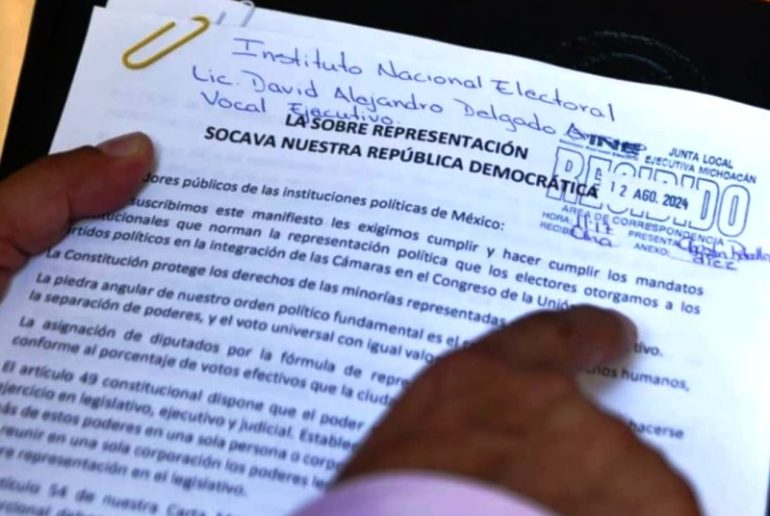 Instituto Nacional Electoral
Lic. David Alejandro Delgado A
Vocal Ejecutivo.
LA SOBRE REPRESENTACIÓN
SOCAVA NUESTRA REPÚBLICA DEMOCRÁTICA
INE
Instituto Nacional Electoral
JUNTA LOCAL
EJECUTIVA MICHOACÁN
RECIBIDO
12 AGO. 2024
AREA DE CORRESPONDENCIA
HORA: 11:17 PRESENTA
RECIBE ANEXO:
dores públicos de las instituciones políticas de México:
suscribimos este manifiesto les exigimos cumplir y hacer cumplir los mandatos
itucionales que norman la representación política que los electores otorgamos a los
artidos políticos en la integración de las Cámaras en el Congreso de la Unión
La Constitución protege los derechos de las minorías representadas tivo.
La piedra angular de nuestro orden político fundamental es el humanos,
la separación de poderes, y el voto universal con igual valo
La asignación de diputados por la fórmula de repre hacerse
conforme al porcentaje de votos efectivos que la ciuda
El artículo 49 constitucional dispone que el poder
ejercicio en legislativo, ejecutivo y judicial. Establec
ás de estos poderes en una sola persona o corpo
reunir en una sola corporación los poderes le
re representación en el legislativo.
tículo 54 de nuestra Carta